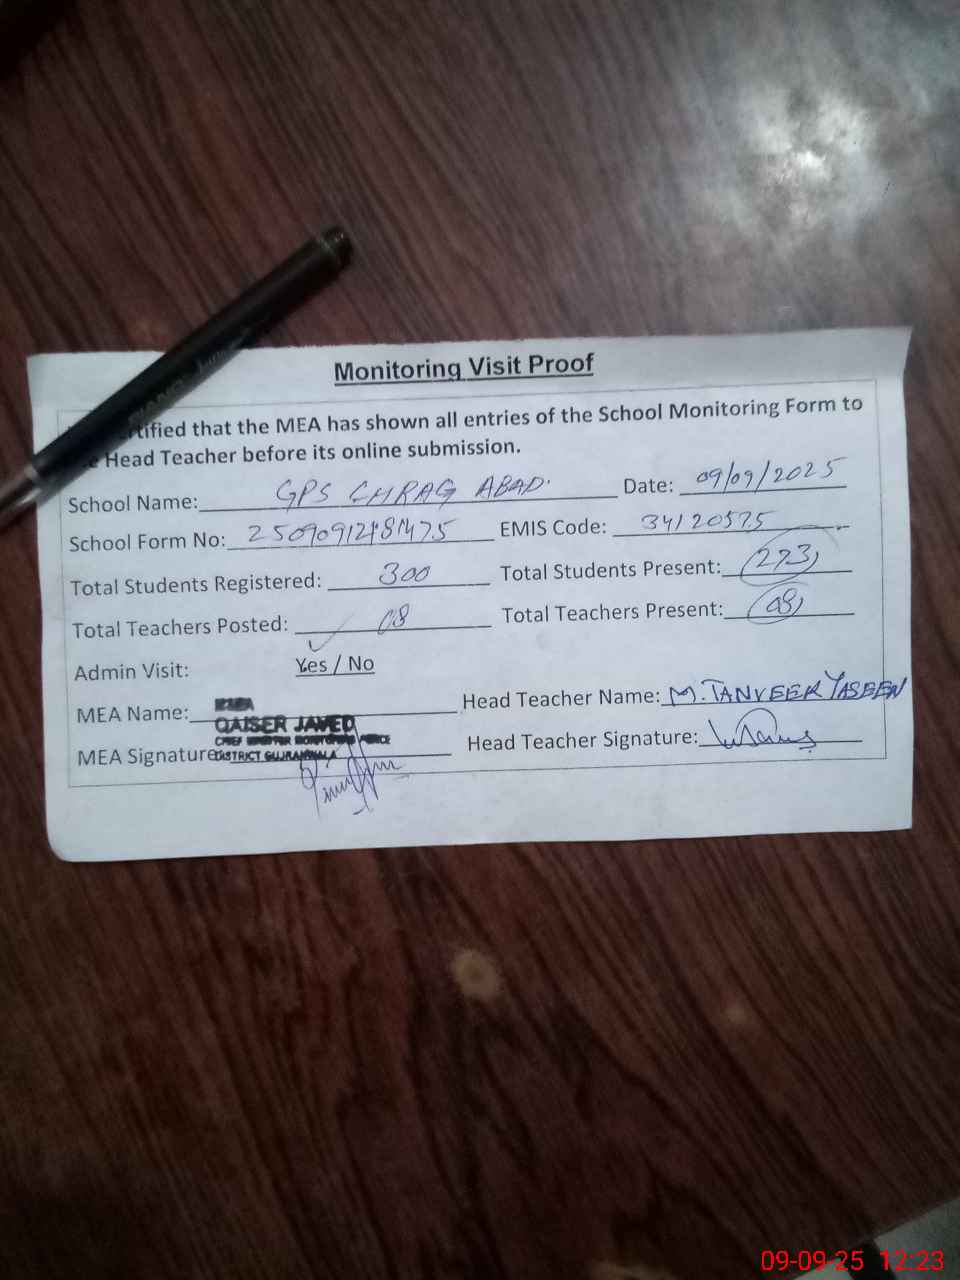 Monitoring Visit Proof
tified that the MEA has shown all entries of the School Monitoring Form to
e Head Teacher before its online submission.
School Name: GPS CHRAG ABAD. Date: 09/09/2025
School Form No: EMIS Code: 34120575
Total Students Registered: 300 Total Students Present: 273
Total Teachers Posted: 08 Total Teachers Present: 08
Admin Visit: Yes / No
MEA Name: Head Teacher Name: M. TANVEER YASEEN
QAISER JAVED
CHIEF MINISTER MONITORING FORCE
MEA Signature Head Teacher Signature:
DISTRICT GUJRANWALA
09-09-25 12:23